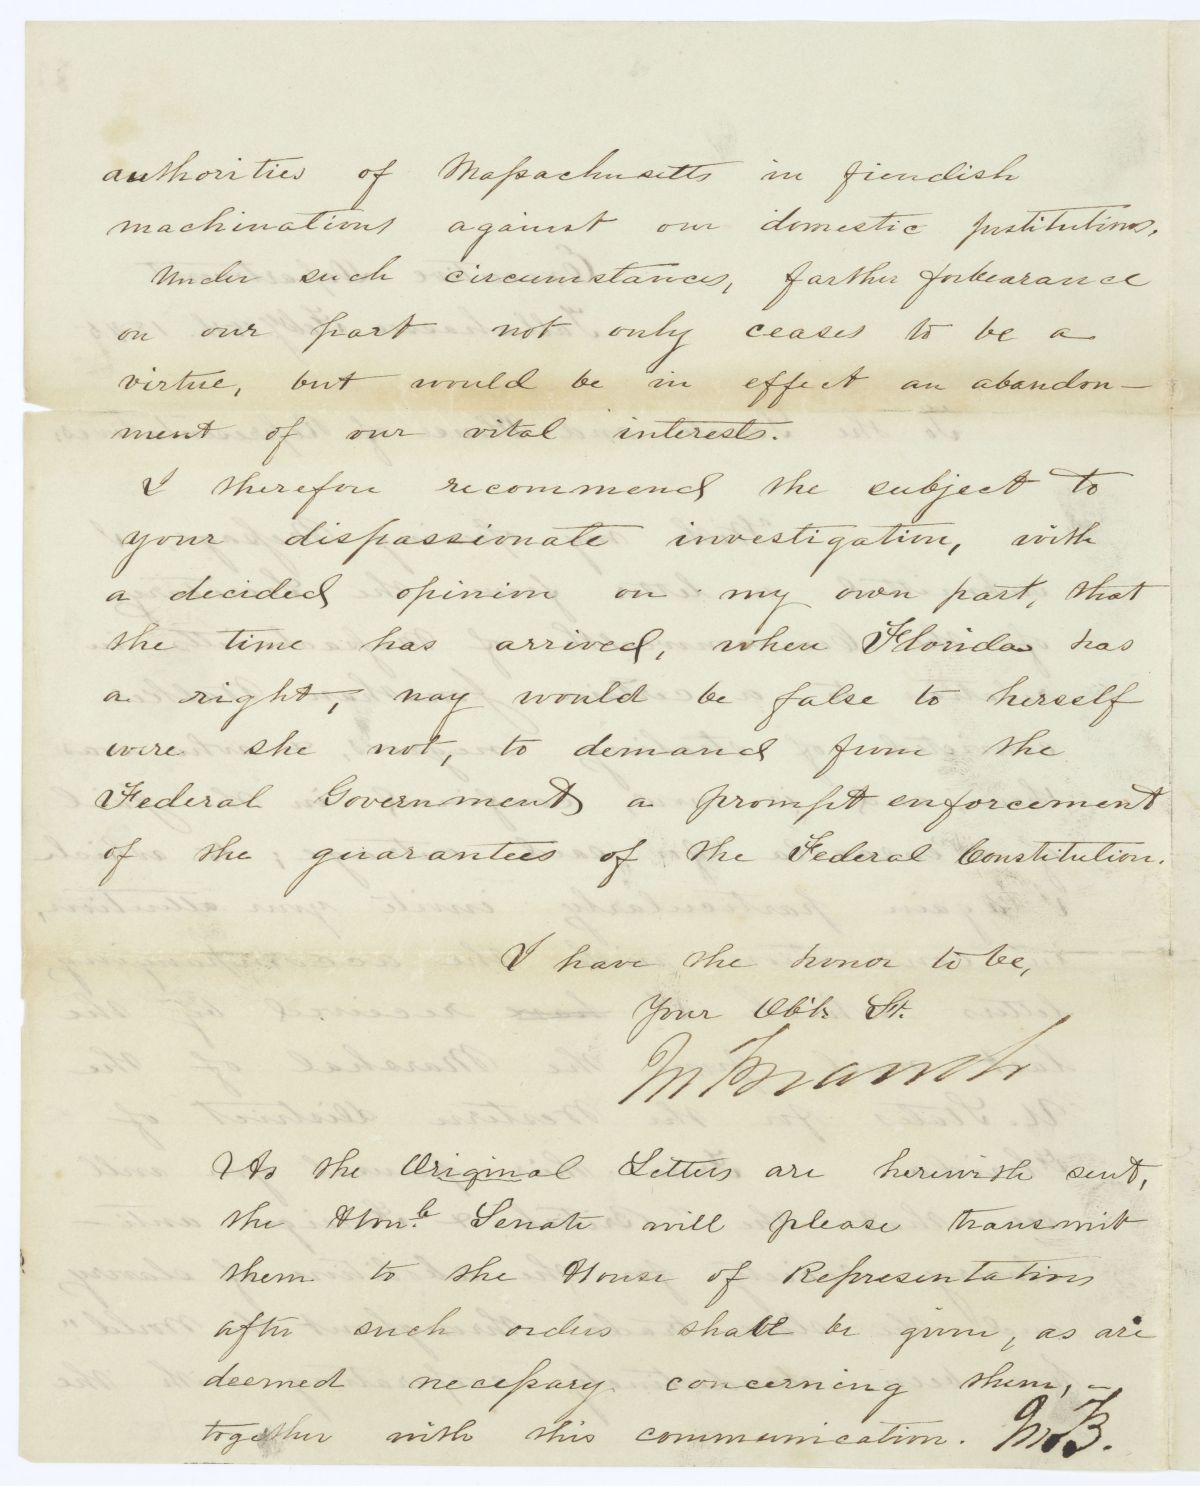 authorities of Massachusetts in fiendish
machinations against our domestic institutions.
Under such circumstances, farther forbearance
on our part not only ceases to be a
virtue, but would be in effect an abandon-
ment of our vital interests.
I therefore recommend the subject to
your dispassionate investigation, with
a decided opinion on my own part, that
the time has arrived, when Florida has
a right, nay would be false to herself
were she not, to demand from the
Federal Government, a prompt enforcement
of the guarantees of the Federal Constitution.
I have the honor to be,
Your Obt. St.
M Branch
As the Original Letters are herewith sent,
the Honble Senate will please transmit
them to the House of Representatives
after such orders shall be given, as are
deemed necessary concerning them, -
together with this communication. M B.